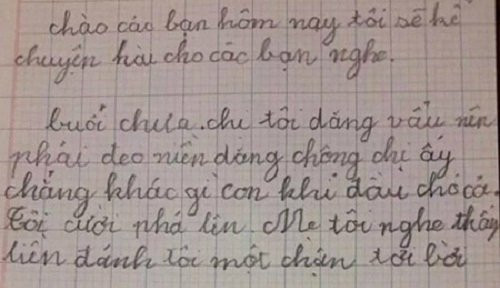 chào các bạn hôm nay tôi sẽ kể
chuyện hài cho các bạn nghe.
buổi chưa. chị tôi dăng vẩu nên
phải deo niền dăng chông chị ấy
chẳng khác gì con khỉ đầu chó cả.
tôi cười phá lên Mẹ tôi nghe thấy
liền đánh tôi một chận tơi bời